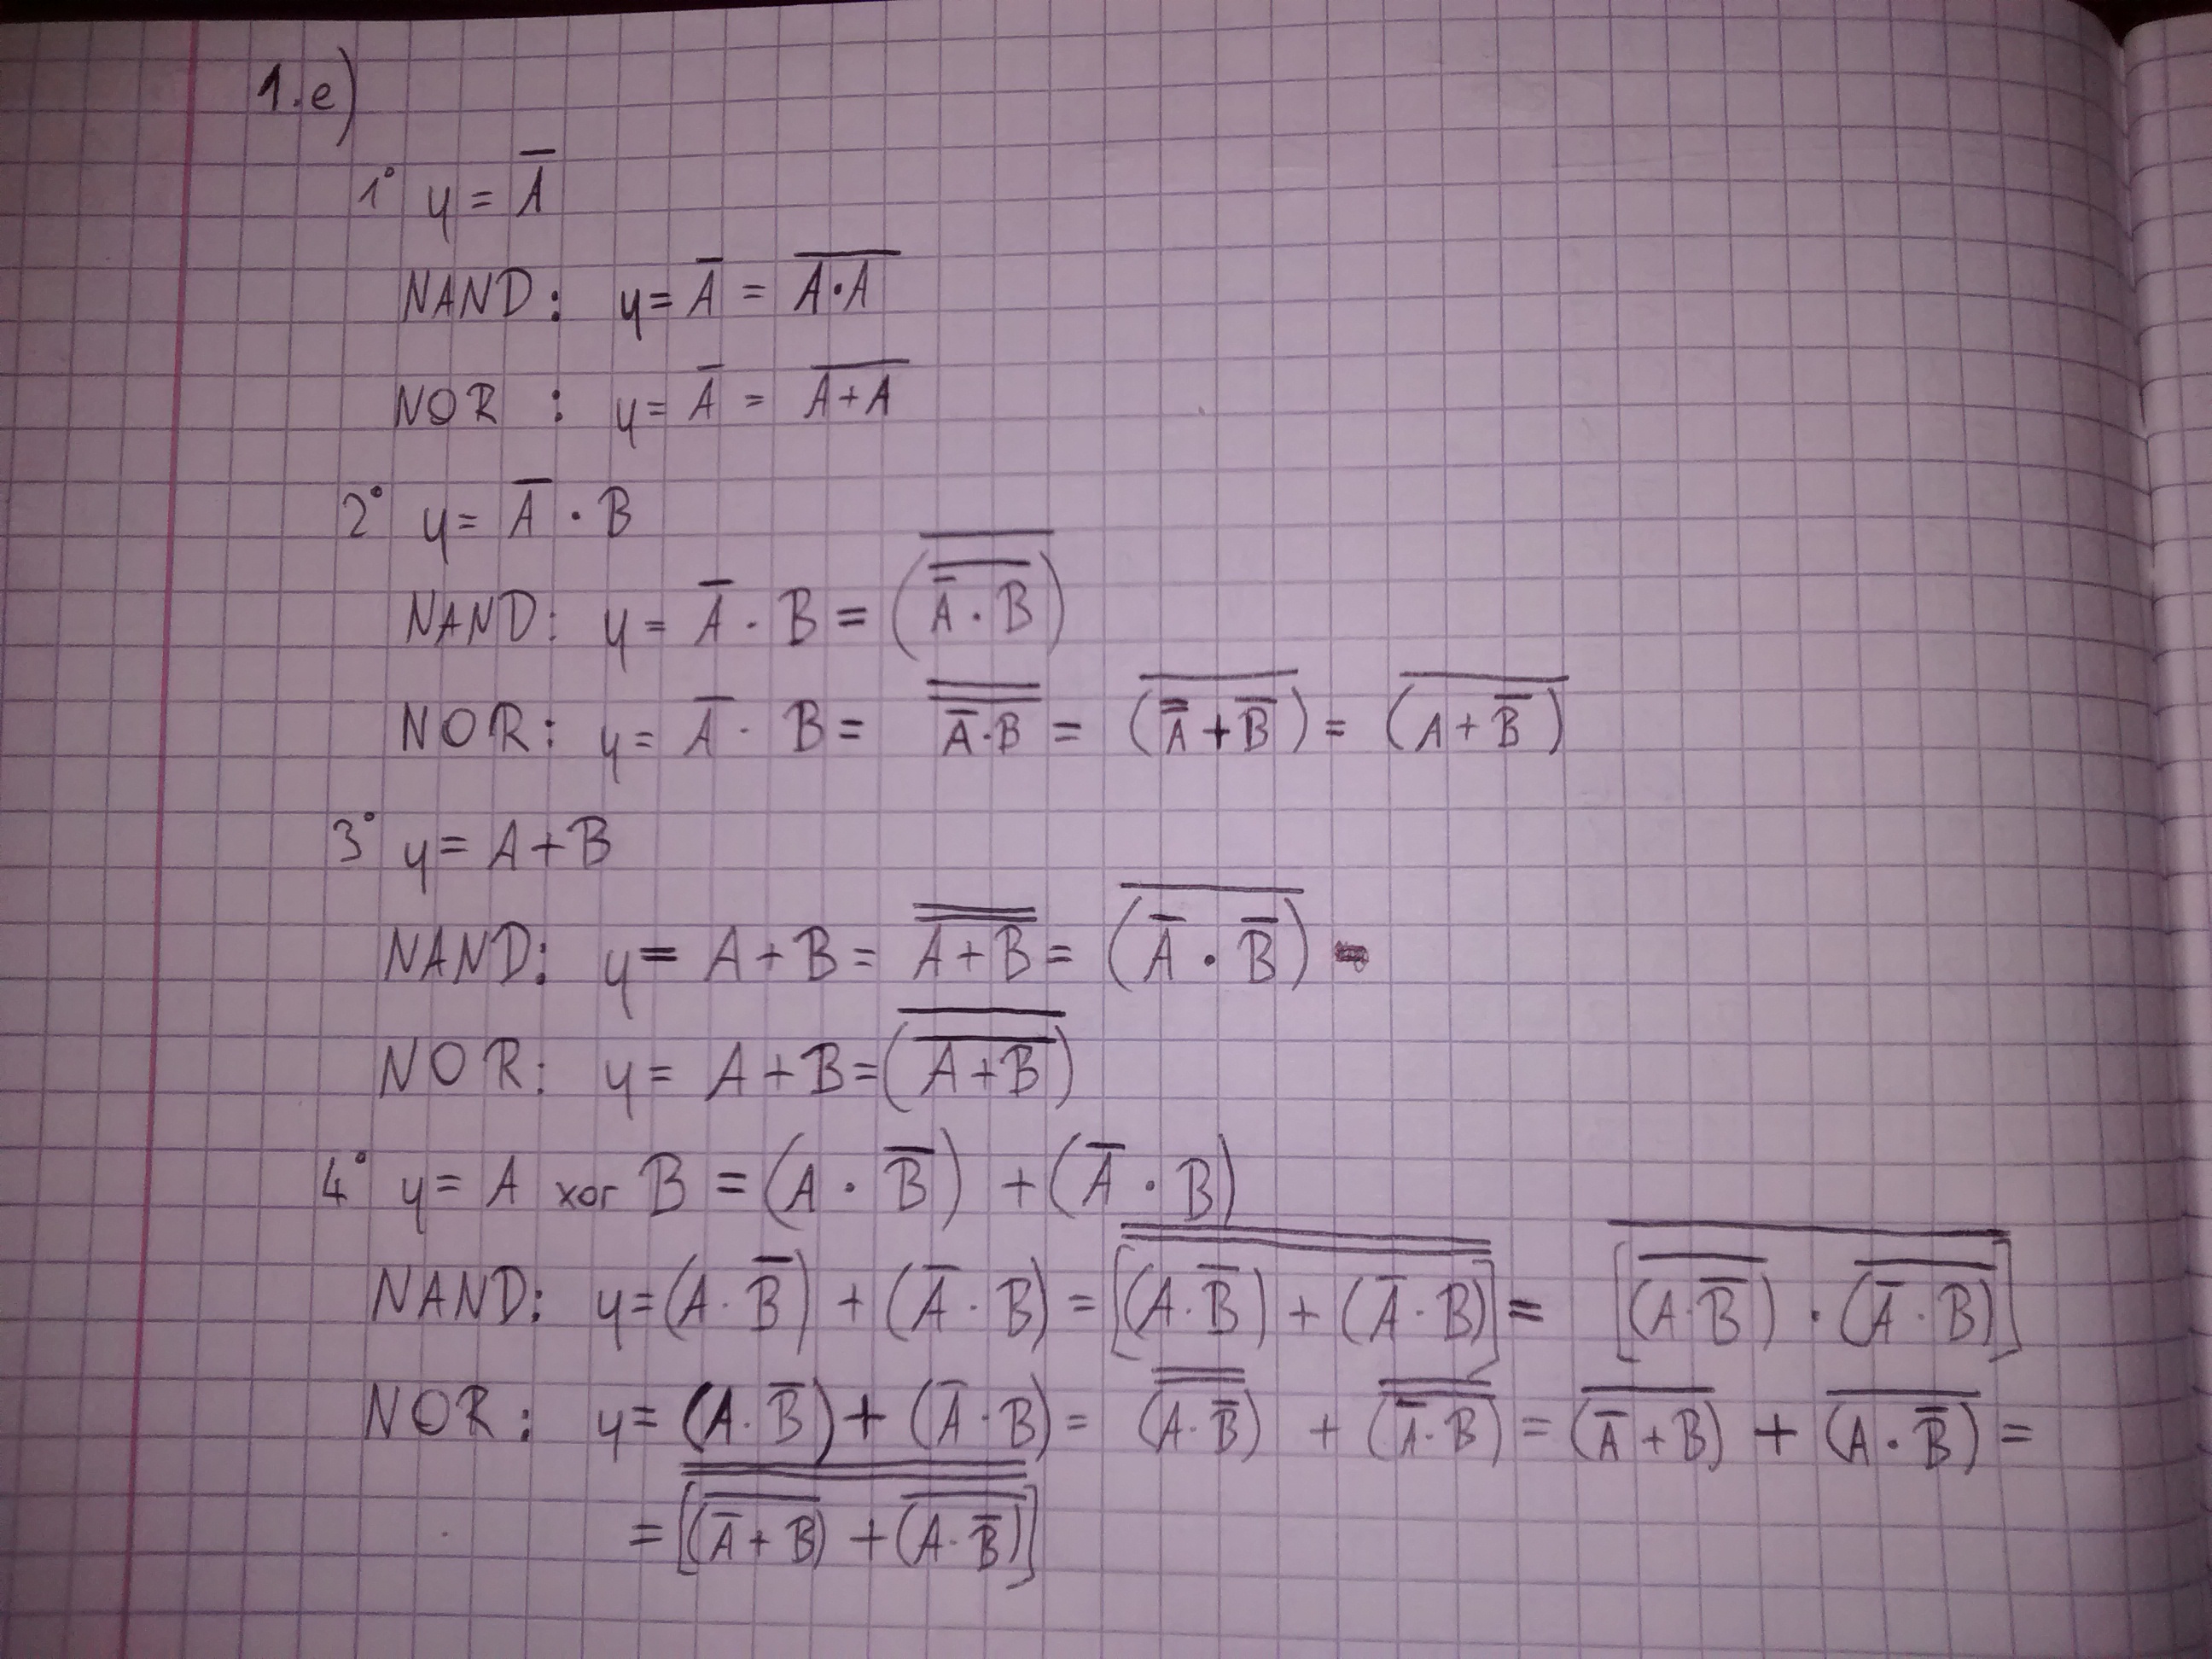 1.e)
1° y = A̅
NAND: y = A̅ = \overline{A·A}
NOR : y = A̅ = \overline{A+A}
2° y = A̅ · B
NAND: y = A̅ · B = \overline{(\overline{A̅ · B})}
NOR: y = A̅ · B = \overline{\overline{A̅·B}} = \overline{(\overline{\overline{A}} + B̅)} = \overline{(A + B̅)}
3° y = A+B
NAND: y = A+B = \overline{\overline{A+B}} = \overline{(A̅ · B̅)}
NOR: y = A+B = \overline{(\overline{A+B})}
4° y = A xor B = (A · B̅) + (A̅ · B)
NAND: y = (A · B̅) + (A̅ · B) = \overline{\overline{[(A · B̅) + (A̅ · B)]}} = \overline{[\overline{(A·B̅)} · \overline{(A̅ · B)}]}
NOR: y = (A · B̅) + (A̅ · B) = \overline{\overline{(A·B̅)}} + \overline{\overline{(A̅·B)}} = \overline{(A̅ + B)} + \overline{(A · B̅)} =
= \overline{\overline{[\overline{(A̅ + B)} + \overline{(A · B̅)}]}}